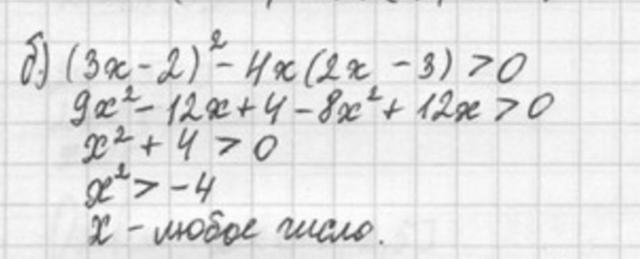 б.) (3x - 2)² - 4x(2x - 3) > 0
9x² - 12x + 4 - 8x² + 12x > 0
x² + 4 > 0
x² > -4
x - любое число.